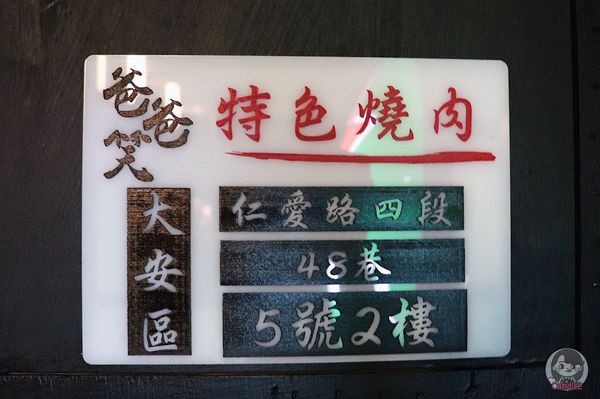 爸爸笑
特色燒肉
大安區
仁愛路四段
48巷
5號2樓